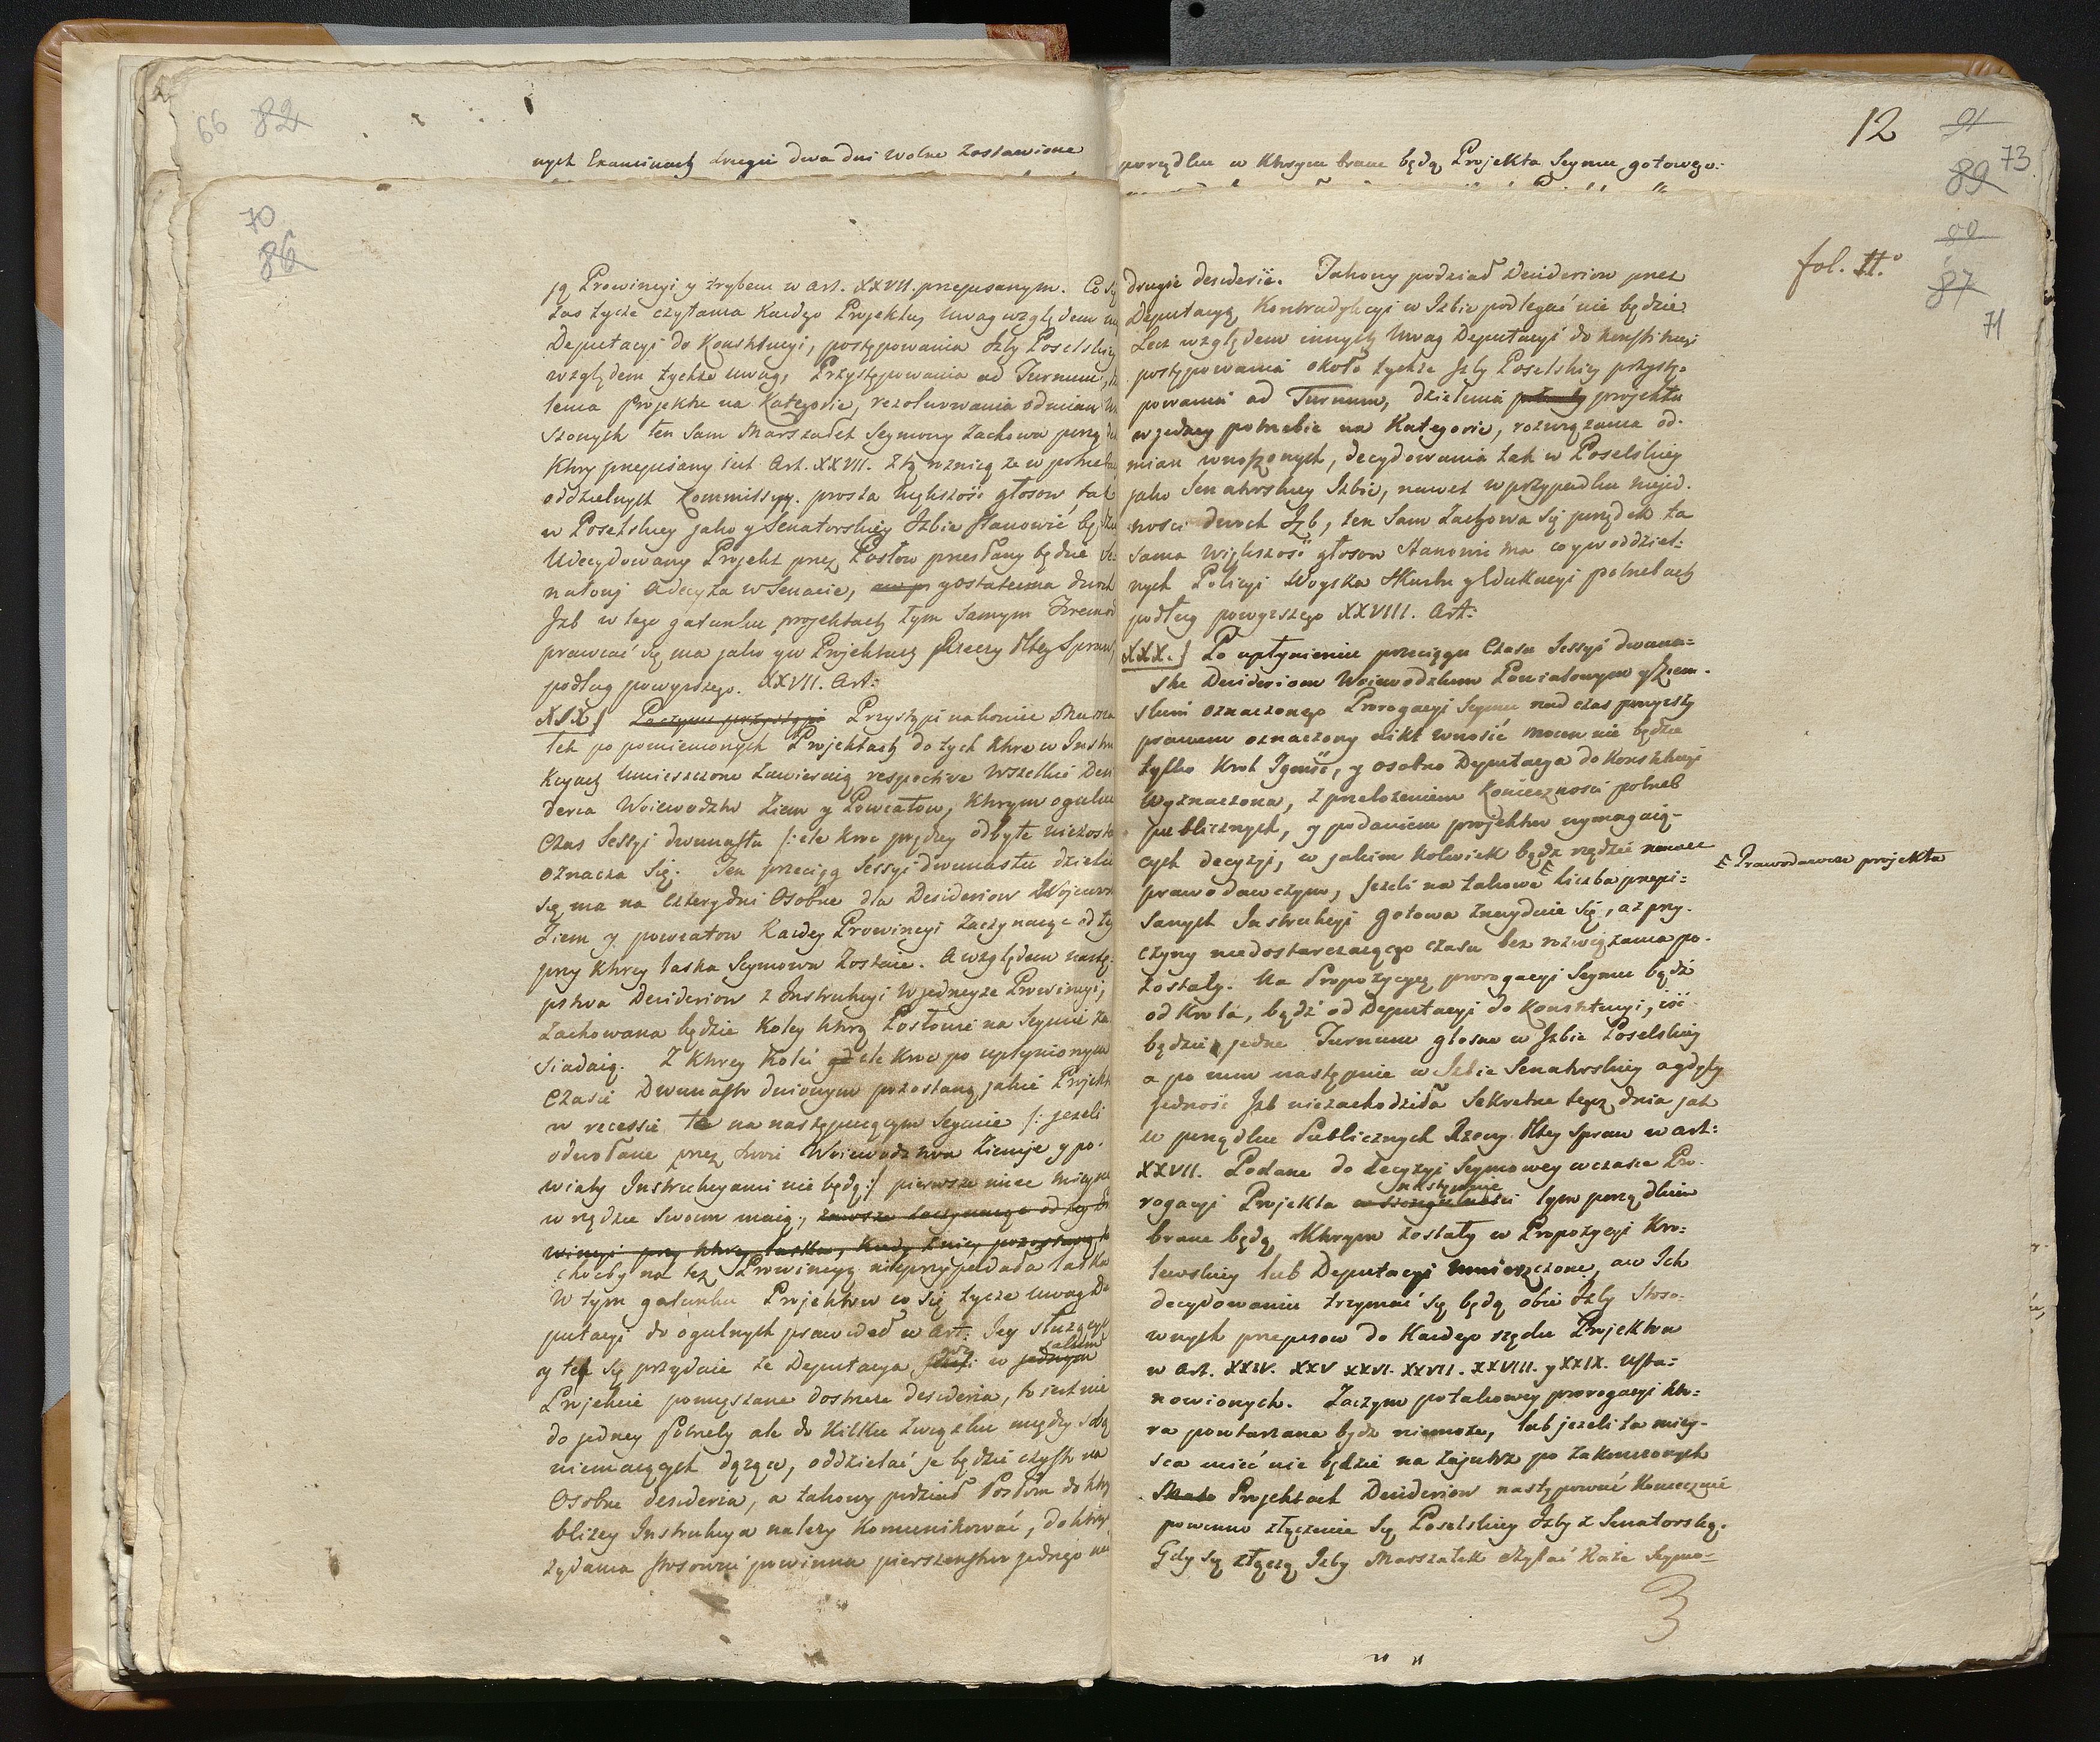 66 82
nych Exancinach drugie dwa dni wolne zostawione
70
86
ią Prowincyi y trybem w art. XXVII. przepisanym. Co się
zas tycze czytania Kazdego Projektu, uwag względem
Deputacyi do Konstytucyi, postępowania Izby Poselskiey
względem tychże uwag, Przystępowania ad Turnum,
lenia Projektu na Kategorie, rezolwowania odmian
szonych ten sam Marszałek Seymowy zachowa porzą
Ktory przepisany iest Art. XXVII. z tą roznicą ze w potrzebach
oddzielnych Kommissyy. prosta większość głosow, tak
w Poselskiey jako y Senatorskiey Izbie stanowić bę
Udecydowany Projekt przez Posłow przesłany będzie Se-
natowi a decyzya w Senacie, y ostateczna dwoch
Izb w tego gatunku projektach tym samym
prawiać się ma jako y w Projektach Rzeczy Pltey Spraw,
podług powyższego XXVII. Art:
XXIX Poczym przystąpi Przystąpi nakoniec Marsza
łek po pomienionych Projektach do tych ktore w Instru
kcyach umieszczone zawieraią respective wszelkie Desi
deria Woiewodztw Ziem y Powiatow, Ktorym ogulnie
czas Sessyi dwunastu /: ile kroc prędzey odbyte niezosta
oznacza się. Ten przeciąg Sessyi dwunastu dzielić
się ma na cztery dni Osobne dla Desideriow Wojewodz
Ziem y powiatow Kazdey Prowincyi zaczynaiąc od tey
przy ktorey laska Seymowa zostaie. A względem nastę-
pstwa Desideriow z Instrukcyi w jedneyze Prowincyi,
zachowana będzie Koley ktorą Posłowie na Seymie za
siadaią. Z ktorey kolei ile kroc po upłynionym
czasie Dwunastu dniowym pozostaną jakie Projekta
w recessie te na następuiącym Seymie /: jezeli
odwołane przez swoie Woiewodztwa Ziemie y po-
wiaty Instrukcyami nie będą :/ pierwsze miec mieysce
w rzędzie swoim maią, zawsze zaczynaiąc od tey Pro
wincyi przy ktorey laska, kiedy z niey pozostaną
choćby na tęz Prowincyą nieprzypadała laska
W tym gatunku Projektow co się tycze uwag De
putacyi do ogulnych prawideł w art. Jey służących
y te się przydaie ze Deputacya gdzi w jednym
Projekcie pomięszane dostrzeże desideria, to iest nie
do jedney Potrzeby ale do Kilku związku między sobą
niemaiących dążące, oddzielać je będzie czyste na
Osobne desideria, a takowy podział Posłom do ktory
blizey Instrukcya nalezy Komunikować, do ktorych
żądania stosować powinna pierszenstwo jednego
12
91
89 73
porządku w ktorym brane będą Projekta Seymu gotowego.
fol. II.º
88
87
71
drugie desiderii. Takowy podział Desideriow przez
Deputacyą Kontradykcyi w Izbie podlegać nie będzie
Lecz względem innych uwag Deputacyi do konstytucyi
postępowania około tychże Izby Poselskiey przystę-
powania ad Turnum, dzielenia projektu
w jedney potrzebie na Kategorie, rozwiązania od-
mian wnoszonych, decydowania tak w Poselskiey
jako Senatorskiey Izbie, nawet w przypadku nieied-
nosci dwoch Izb, ten sam zachowa się porządek ta
sama większość głosow stanowić ma co y w oddziel-
nych Policyi Woyska Skarbu y Edukacyi potrzebach
podług powyższego XXVIII. Art:
XXX. Po upłynieniu przeciągu Czasu Sessyi dwuna-
stu Desideriom Woiewodzkim Powiatowym y Ziem-
skim oznaczonego Prorogacyi Seymu nad czas pomyzszy
prawem oznaczony nikt wnosić mocen nie będzie
tylko Krol Jgmść, y osobna Deputacya do Konstytucyi
wyznaczona, z przełożeniem Konieczności potrzeb
publicznych, y podaniem projektow wymagaią-
cych decyzyi, w jakim kolwiek bądz rzędzie
prawodawczym, Jezeli na takowe E liczba przepi-
E Prawodawcze projekta
sanych Instrukcyi gotowa znaydzie się, a z przy-
czyny niedostarczaiącego czasu bez rozwiązania po-
zostały. Na Propozycyą prorogacyi Seymu bądź
od Krola, bądź od Deputacyi do Konstytucyi, iść
będzie jedne Turnum głosow w Izbie Poselskiey
a po nim następnie w Izbie Senatorskiey a gdyby
jedność Izb niezachodziła Sekretne tegoż dnia jak
w porządku Publicznych Rzeczy Pltey Spraw w art:
XXVII. Podane do Decyzyi Seymowey w czasie Pro-
rogacyi Projekta w szczegulności następnie tym porządkiem
brane będą ktorym zostały w Propozycyi Kro-
lewskiey lub Deputacyi umieszczone, a w Ich
decydowaniu trzymać się będą obie Izby stoso-
wnych przepisow do Kazdego rzędu Projektow
w Art. XXIV. XXV XXVI. XXVII. XXVIII. y XXIX. usta-
nowionych. Zaczym po takowey prorogacyi kto-
ra powtarzana bydz niemoże, lub jezeli ta miey-
sca mieć nie będzie na zajutrz po zakonczonych
Projektach Desideriow następować Koniecznie
powinno złączenie się Poselskiey Izby z Senatorską.
Gdy się złączą Izby Marszałek czytać Każe Seymo-
3